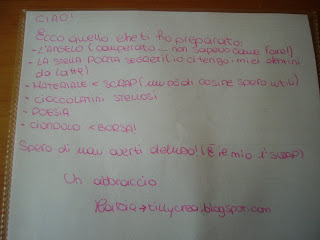 CIAO!
Ecco quello che ti ho preparato:
- L'ANGELO (comperato... non sapevo come fare!)
- LA STELLA PORTA SEGRETI (io ci tengo i miei dentini
da latte)
- MATERIALE X SCRAP (un po' di cosine spero utili)
- CIOCCOLATINI STELLOSI
- POESIA
- CIONDOLO X BORSA!
Spero di non averti deluso! (È il mio 1° SWAP)
Un abbraccio
→ tillycrea.blogspot.com